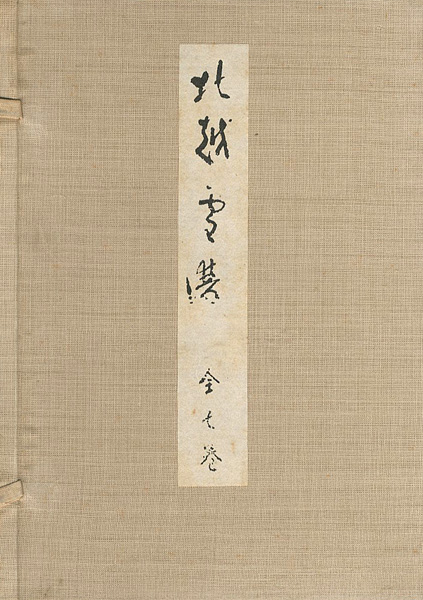 北越雪譜 全七巻